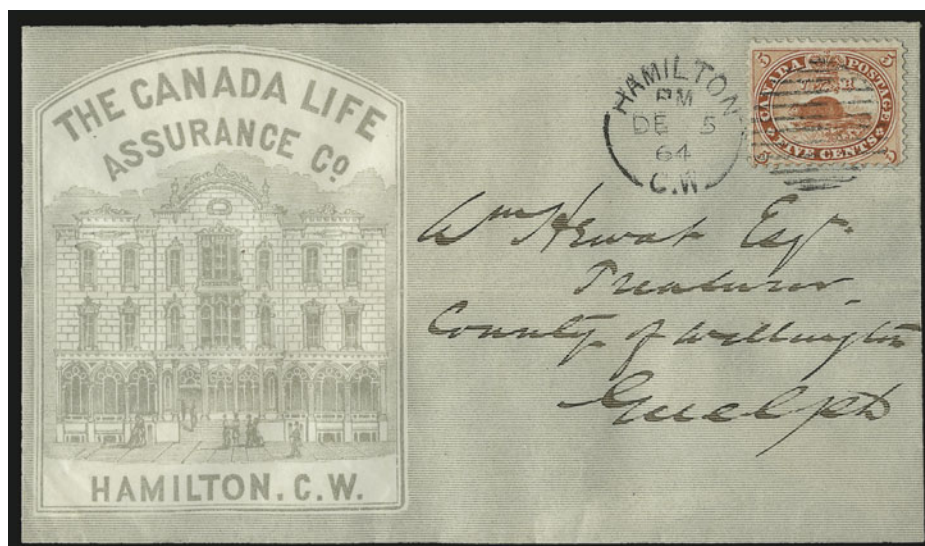 THE CANADA LIFE
ASSURANCE Co
HAMILTON. C.W.
HAMILTON
PM
DE 5
64
C.W.
5 5
CANADA POSTAGE
FIVE CENTS
5 5
Wm Hewat Esqr.
Treasurer
County of Wellington
Guelph